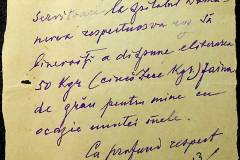 Servitoare la spitalul
nirea respectuoasă vă să
binevoiți a dispune eliberarea
50 Kgr (cincizeci Kgr) faina
de grâu pentru mine cu
ocazia nuntei mele.
Cu profund respect